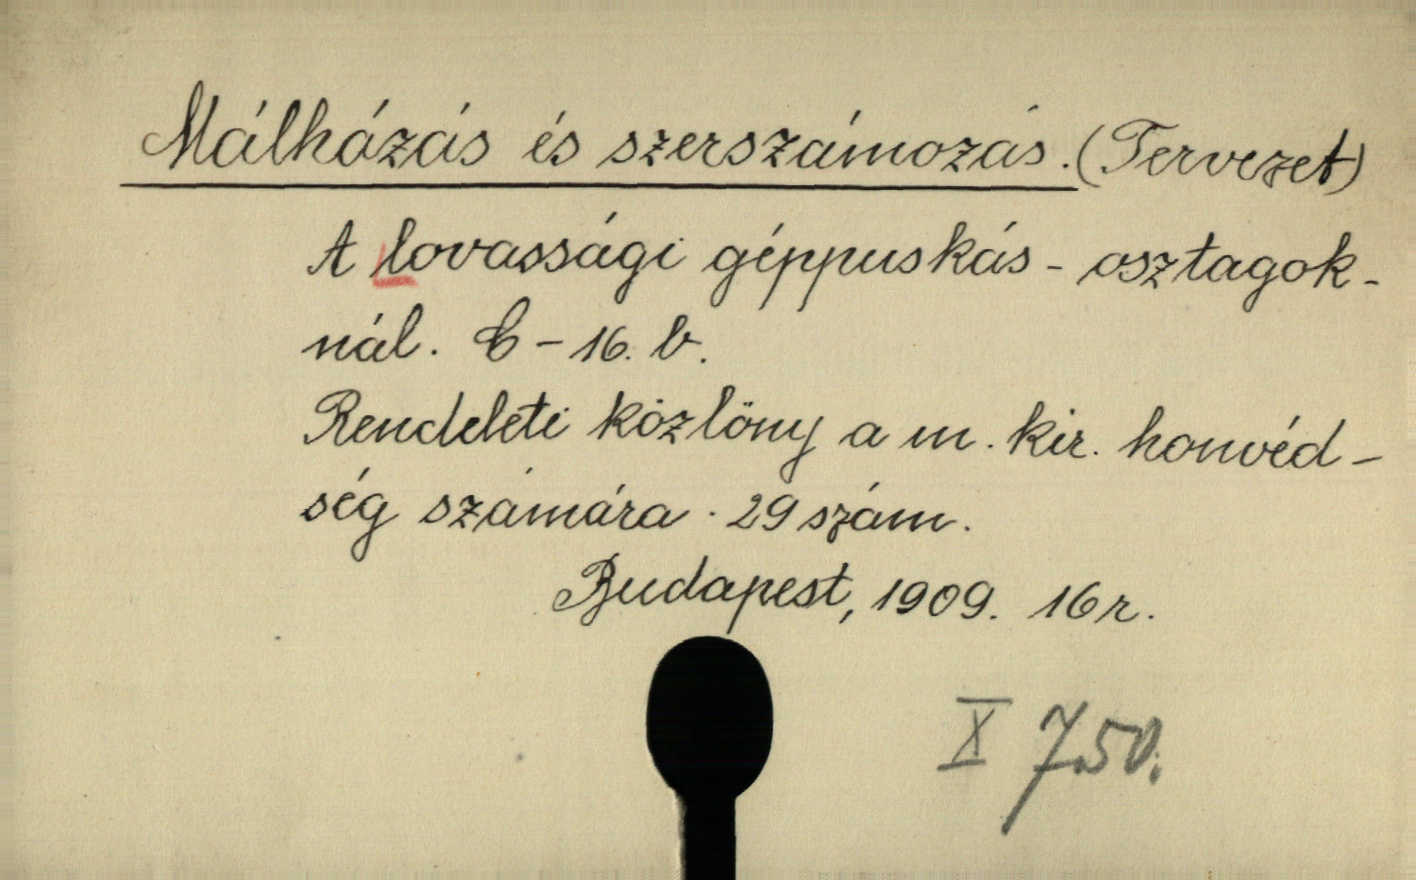 Málházás és szerszámozás. (Tervezet)
A lovassági géppuskás - osztagok-
nál. C - 16. b.
Rendeleti közlöny a m. kir. honvéd-
ség számára. 29 szám.
Budapest, 1909. 16 r.
X 750.